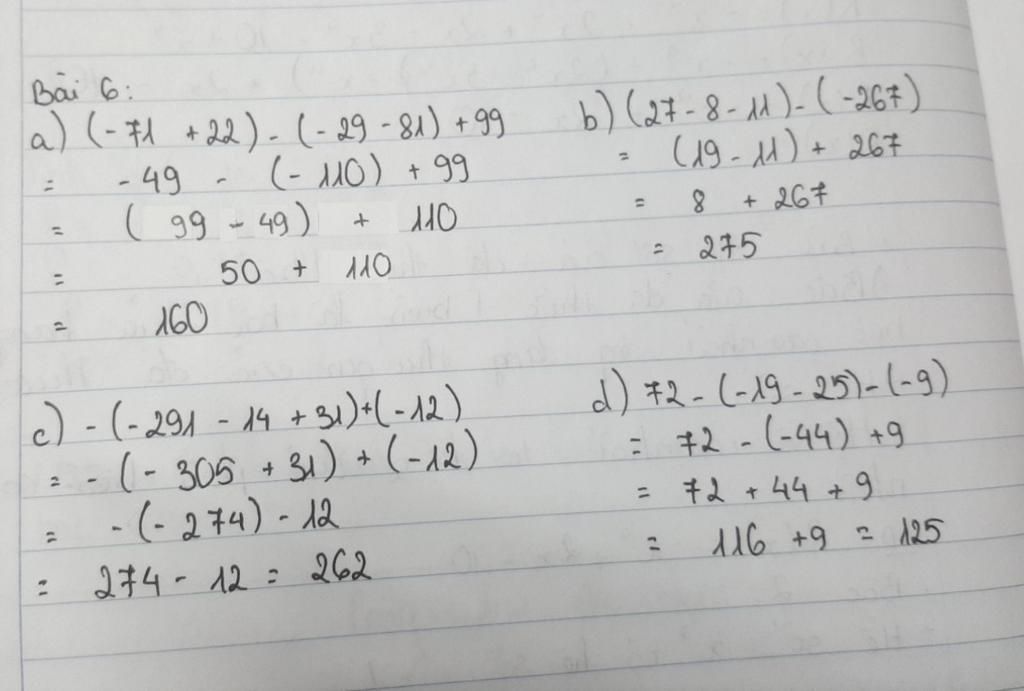 Bài 6:
a) (-71 + 22) - (-29 - 81) + 99
= -49 - (-110) + 99
= (99 - 49) + 110
= 50 + 110
= 160
b) (27 - 8 - 11) - (-267)
= (19 - 11) + 267
= 8 + 267
= 275
c) - (-291 - 14 + 31) + (-12)
= - (- 305 + 31) + (-12)
= - (- 274) - 12
= 274 - 12 = 262
d) 72 - (-19 - 25) - (-9)
= 72 - (-44) + 9
= 72 + 44 + 9
= 116 + 9 = 125